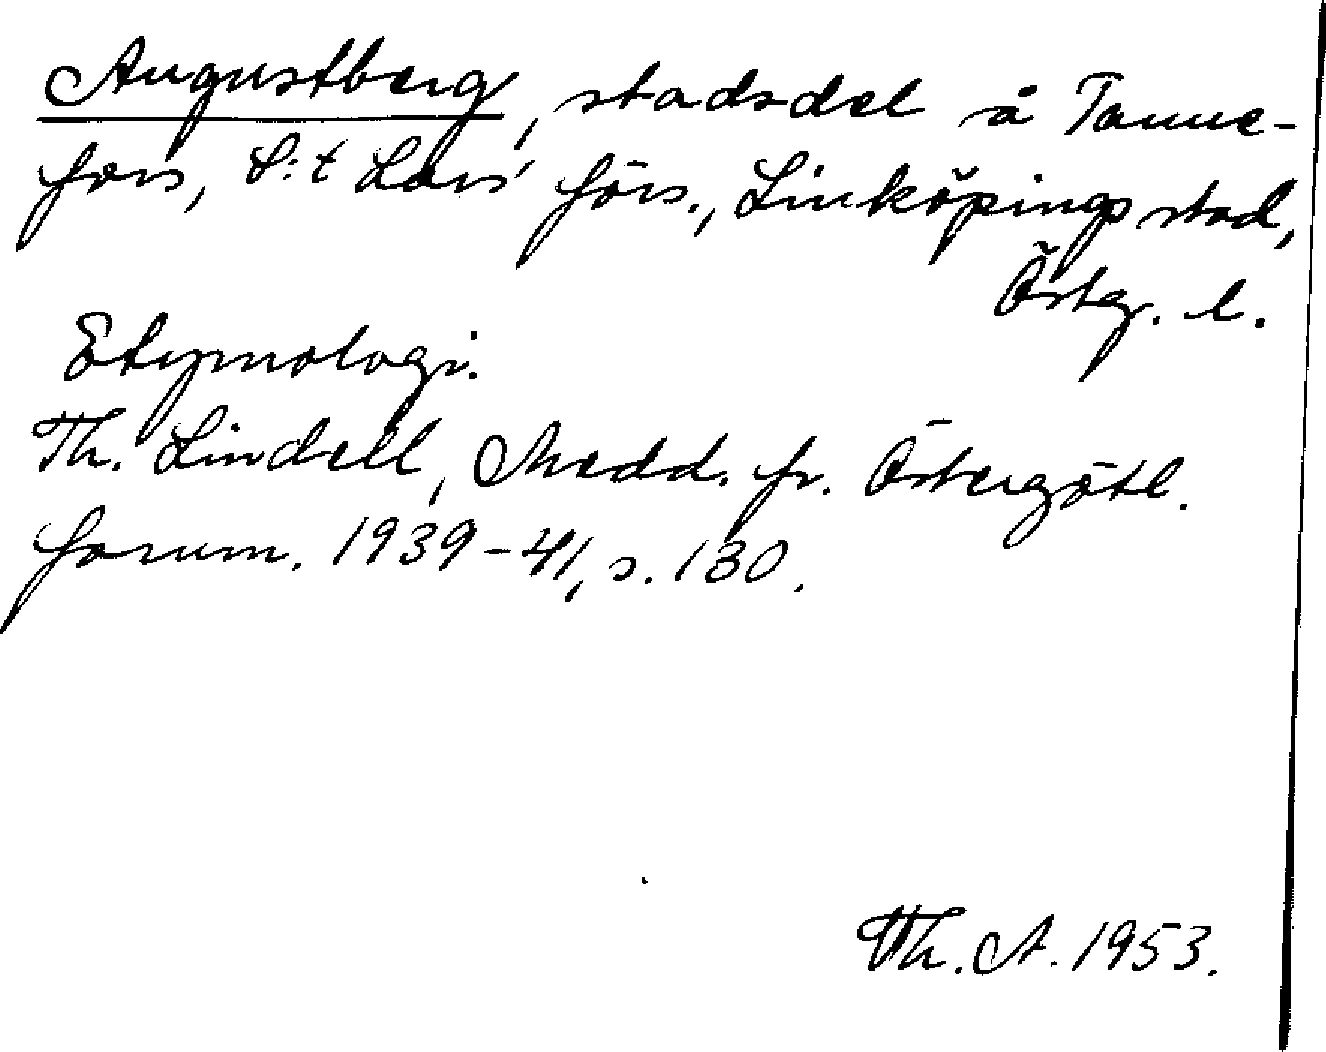 Augustberg, stadsdel å Tanne-
fors, S:t Lars' förs., Linköpings stad,
Östg. l.
Etymologi.
Th. Lindell, Medd. fr. Östergötl.
fornm. 1939-41, s. 130.
Th. A. 1953.